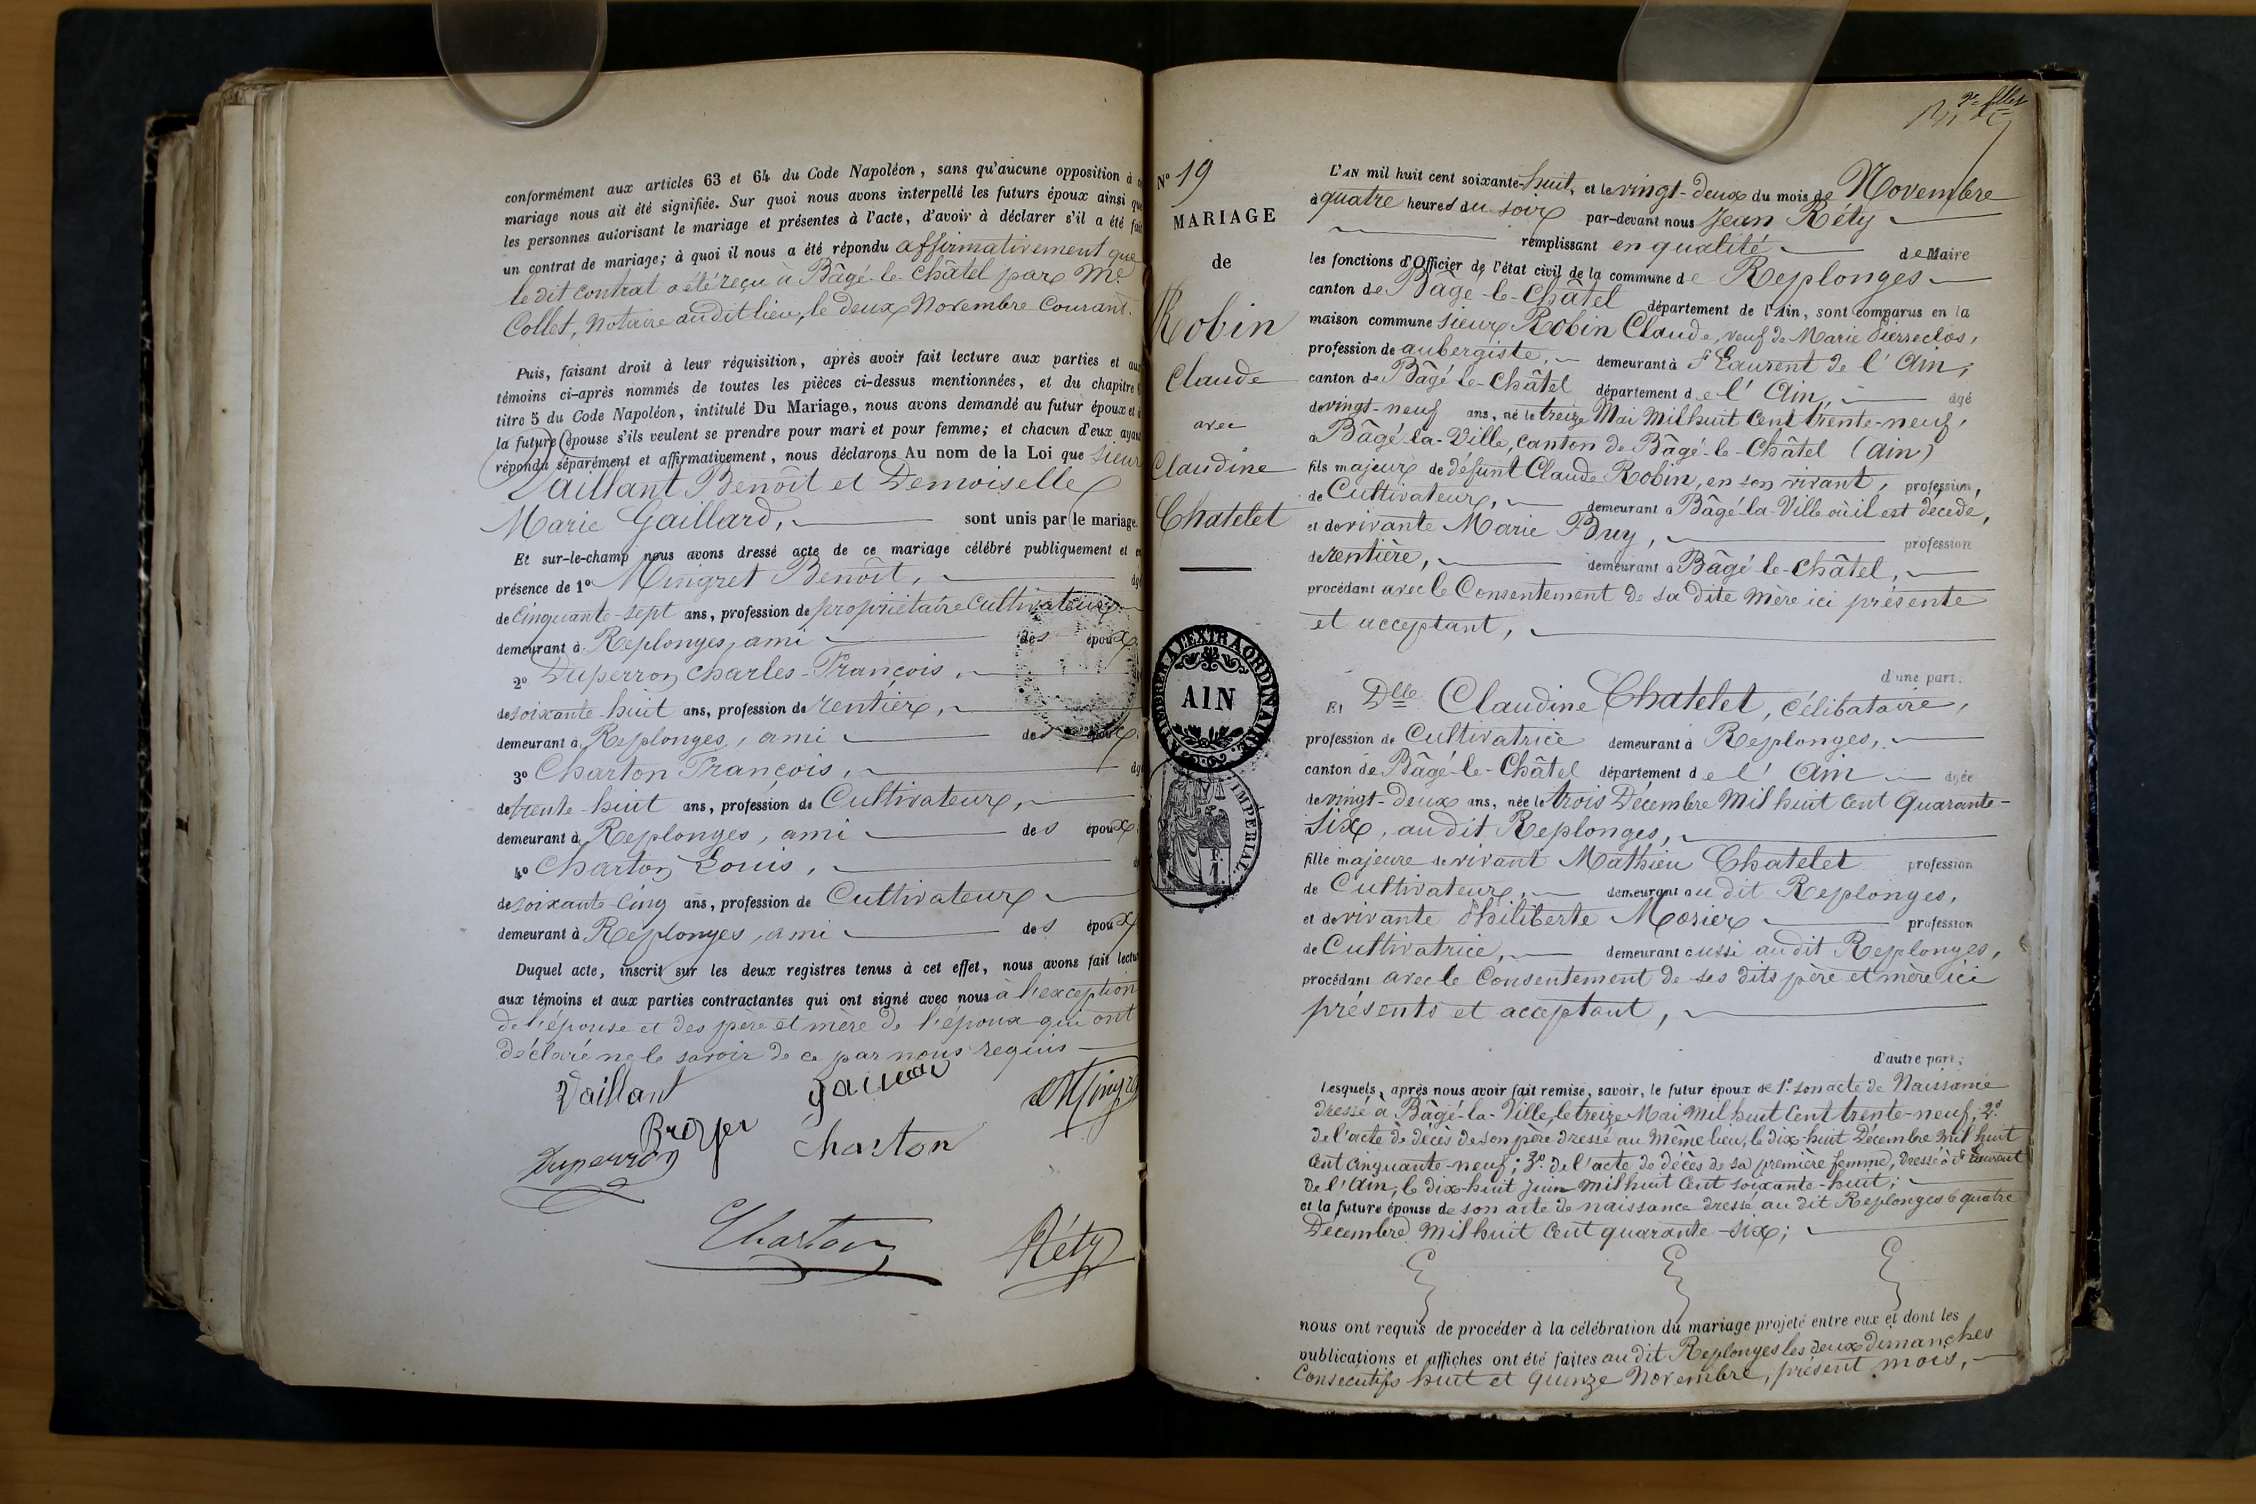 conformément aux articles 63 et 64 du Code Napoléon, sans qu'aucune opposition à
mariage nous ait été signifiée. Sur quoi nous avons interpellé les futurs époux ainsi que
les personnes autorisant le mariage et présentes à l'acte, d'avoir à déclarer s'il a été fait
un contrat de mariage; à quoi il nous a été répondu affirmativement que
le dit Contrat a été reçu à Bâgé-le-Châtel par Me
Collet, Notaire audit lieu, le deux Novembre Courant.
Puis, faisant droit à leur réquisition, après avoir fait lecture aux parties et aux
témoins ci-après nommés de toutes les pièces ci-dessus mentionnées, et du chapitre
titre 5 du Code Napoléon, intitulé Du Mariage, nous avons demandé au futur époux et à
la future épouse s'ils veulent se prendre pour mari et pour femme; et chacun d'eux ayant
répondu séparément et affirmativement, nous déclarons Au nom de la Loi que Sieur
Vaillant Benoît et Demoiselle
Marie Gaillard, sont unis par le mariage.
Et sur-le-champ nous avons dressé acte de ce mariage célébré publiquement et en
présence de 1° Mingret Benoît, âgé
de Cinquante-sept ans, profession de propriétaire Cultivateur
demeurant à Replonges, ami des époux
2° Duperron Charles-François,
de soixante-huit ans, profession de rentier,
demeurant à Replonges, ami des époux
3° Charton François, âgé
de trente-huit ans, profession de Cultivateur,
demeurant à Replonges, ami des époux
4° Charton Louis,
de soixante-Cinq ans, profession de Cultivateur
demeurant à Replonges, ami des époux
Duquel acte, inscrit sur les deux registres tenus à cet effet, nous avons fait lecture
aux témoins et aux parties contractantes qui ont signé avec nous à l'exception
de l'épouse et des père et mère de l'époux qui ont
déclaré ne le savoir de ce par nous requis
Vaillant
Broyer
Charton
Duperron
Charton
Réty
N° 19
MARIAGE
de
Robin
Claude
avec
Claudine
Chatelet
TIMBRER A L'EXTRAORDINAIRE
AIN
IMPERIAL
L'AN mil huit cent soixante-huit, et le vingt-deux du mois de Novembre
à quatre heures du soir par-devant nous Jean Réty
remplissant en qualité de Maire
les fonctions d'Officier de l'état civil de la commune de Replonges
canton de Bâgé-le-Châtel département de l'Ain, sont comparus en la
maison commune Sieur Robin Claude, veuf de Marie Pierreclos,
profession de aubergiste, demeurant à St Laurent de l'Ain,
canton de Bâgé-le-Châtel département de l'Ain, âgé
de vingt-neuf ans, né le treize Mai Mil huit Cent trente-neuf,
à Bâgé-la-Ville, Canton de Bâgé-le-Châtel (Ain)
fils majeur de défunt Claude Robin, en son vivant, profession
de Cultivateur, demeurant à Bâgé-la-Ville où il est décédé,
et de vivante Marie Buy, profession
de rentière, demeurant à Bâgé-le-Châtel,
procédant avec le Consentement de sa dite Mère ici présente
et acceptant,
d'une part;
Et Dlle Claudine Chatelet, Célibataire,
profession de Cultivatrice demeurant à Replonges,
canton de Bâgé-le-Châtel département de l'Ain âgée
de vingt-deux ans, née le trois Décembre Mil huit Cent Quarante-
Six, audit Replonges,
fille majeure de vivant Mathieu Chatelet profession
de Cultivateur, demeurant audit Replonges,
et de vivante Philiberte Mosier profession
de Cultivatrice, demeurant aussi audit Replonges,
procédant avec le Consentement de ses dits père et mère ici
présents et acceptant,
d'autre part;
Lesquels, après nous avoir fait remise, savoir, le futur époux de 1° son acte de Naissance
dressé à Bâgé-la-Ville, le treize Mai Mil huit Cent trente-neuf, 2°
de l'acte de décès de son père dressé au même lieu, le dix-huit Décembre Mil huit
Cent Cinquante-neuf; 3° de l'acte de décès de sa première femme, dressé à St Laurent
de l'Ain, le dix-huit Juin Mil huit Cent soixante-huit;
et la future épouse de son acte de naissance dressé au dit Replonges le quatre
Décembre Mil huit Cent quarante-six;
nous ont requis de procéder à la célébration du mariage projeté entre eux et dont les
publications et affiches ont été faites au dit Replonges les deux dimanches
Consécutifs huit et quinze Novembre, présent mois,